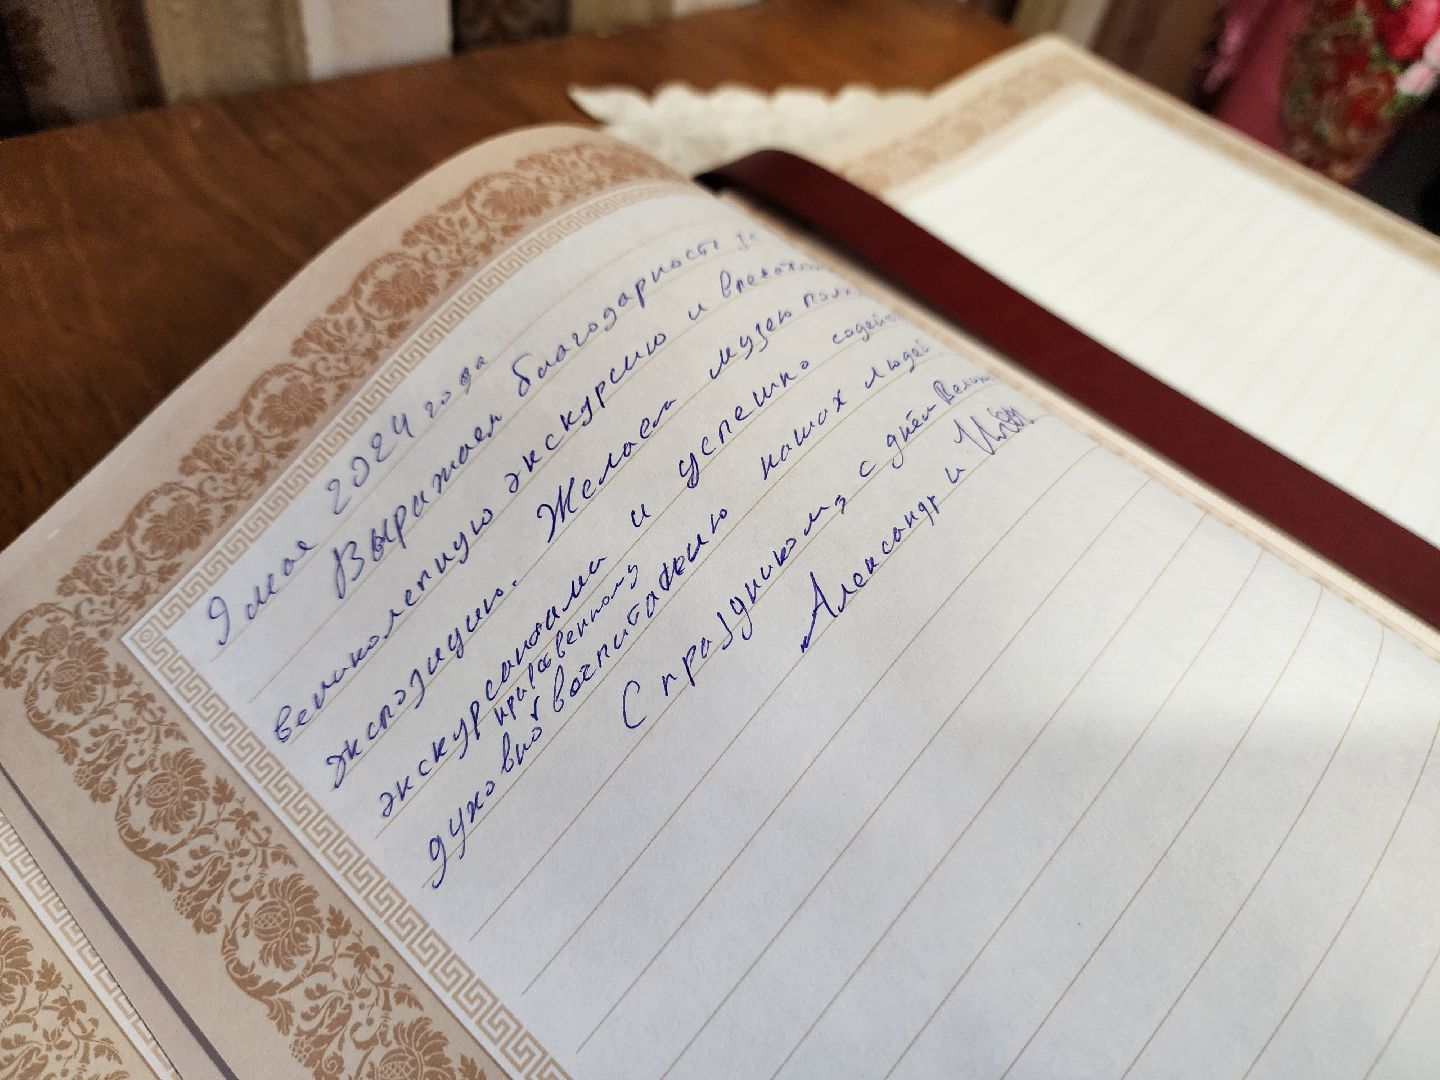 9 мая 2024 года
Выражаем благодарность за
великолепную экскурсию и
экспозицию. Желаем музею
экскурсантами и успешно
нравственному
духовно воспитанию наших людей
С праздником, с днём
Александр и